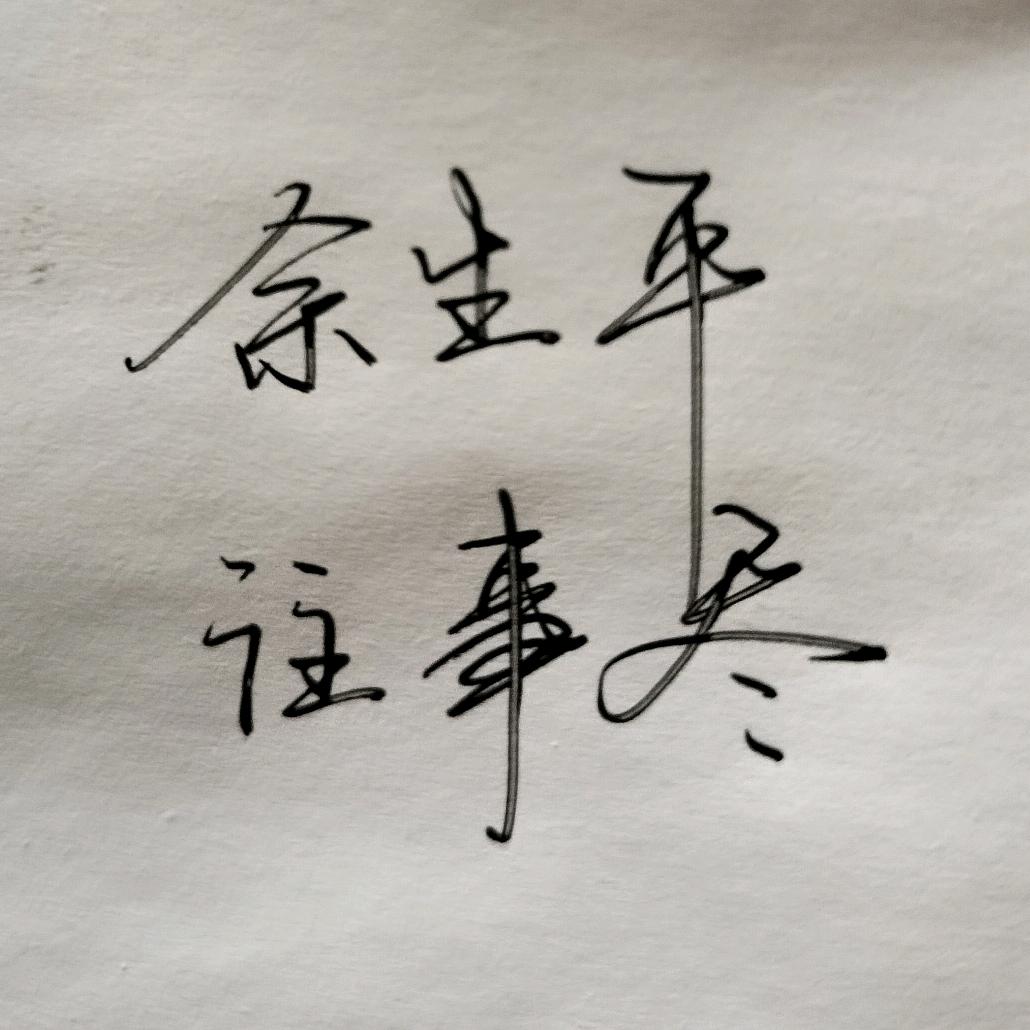 余生平
往事尽